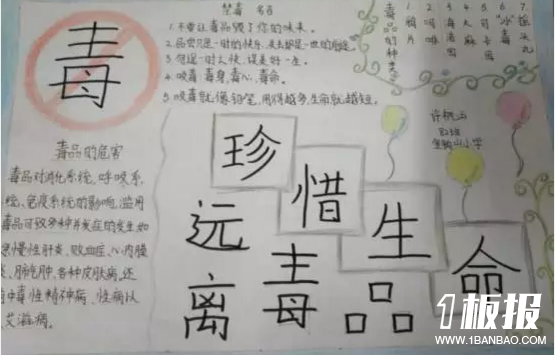 毒
禁毒 名言
1.不要让毒品毁了你的未来。
2.品尝只是一时的快乐,失去却是一世的
3.
4.吸毒:毒身,毒心,毒命。
5.吸毒就像铅笔,用得越多,生命就越短。
毒品的种类
1.鸦片
2.吗啡
3.海洛因
4.大麻
5.可卡因
6.“冰”毒
7.摇头丸
毒品的危害
毒品对消化系统,呼吸系
统、免疫系统的影响,滥用
毒品可致多种并发症的发生,如
慢性肝炎、败血症、心内膜
、肺脓肿、各种皮肤病,还
中毒性精神病、性病以
艾滋病。
珍惜生命
远离毒品
1板报
WWW.1BANBAO.COM